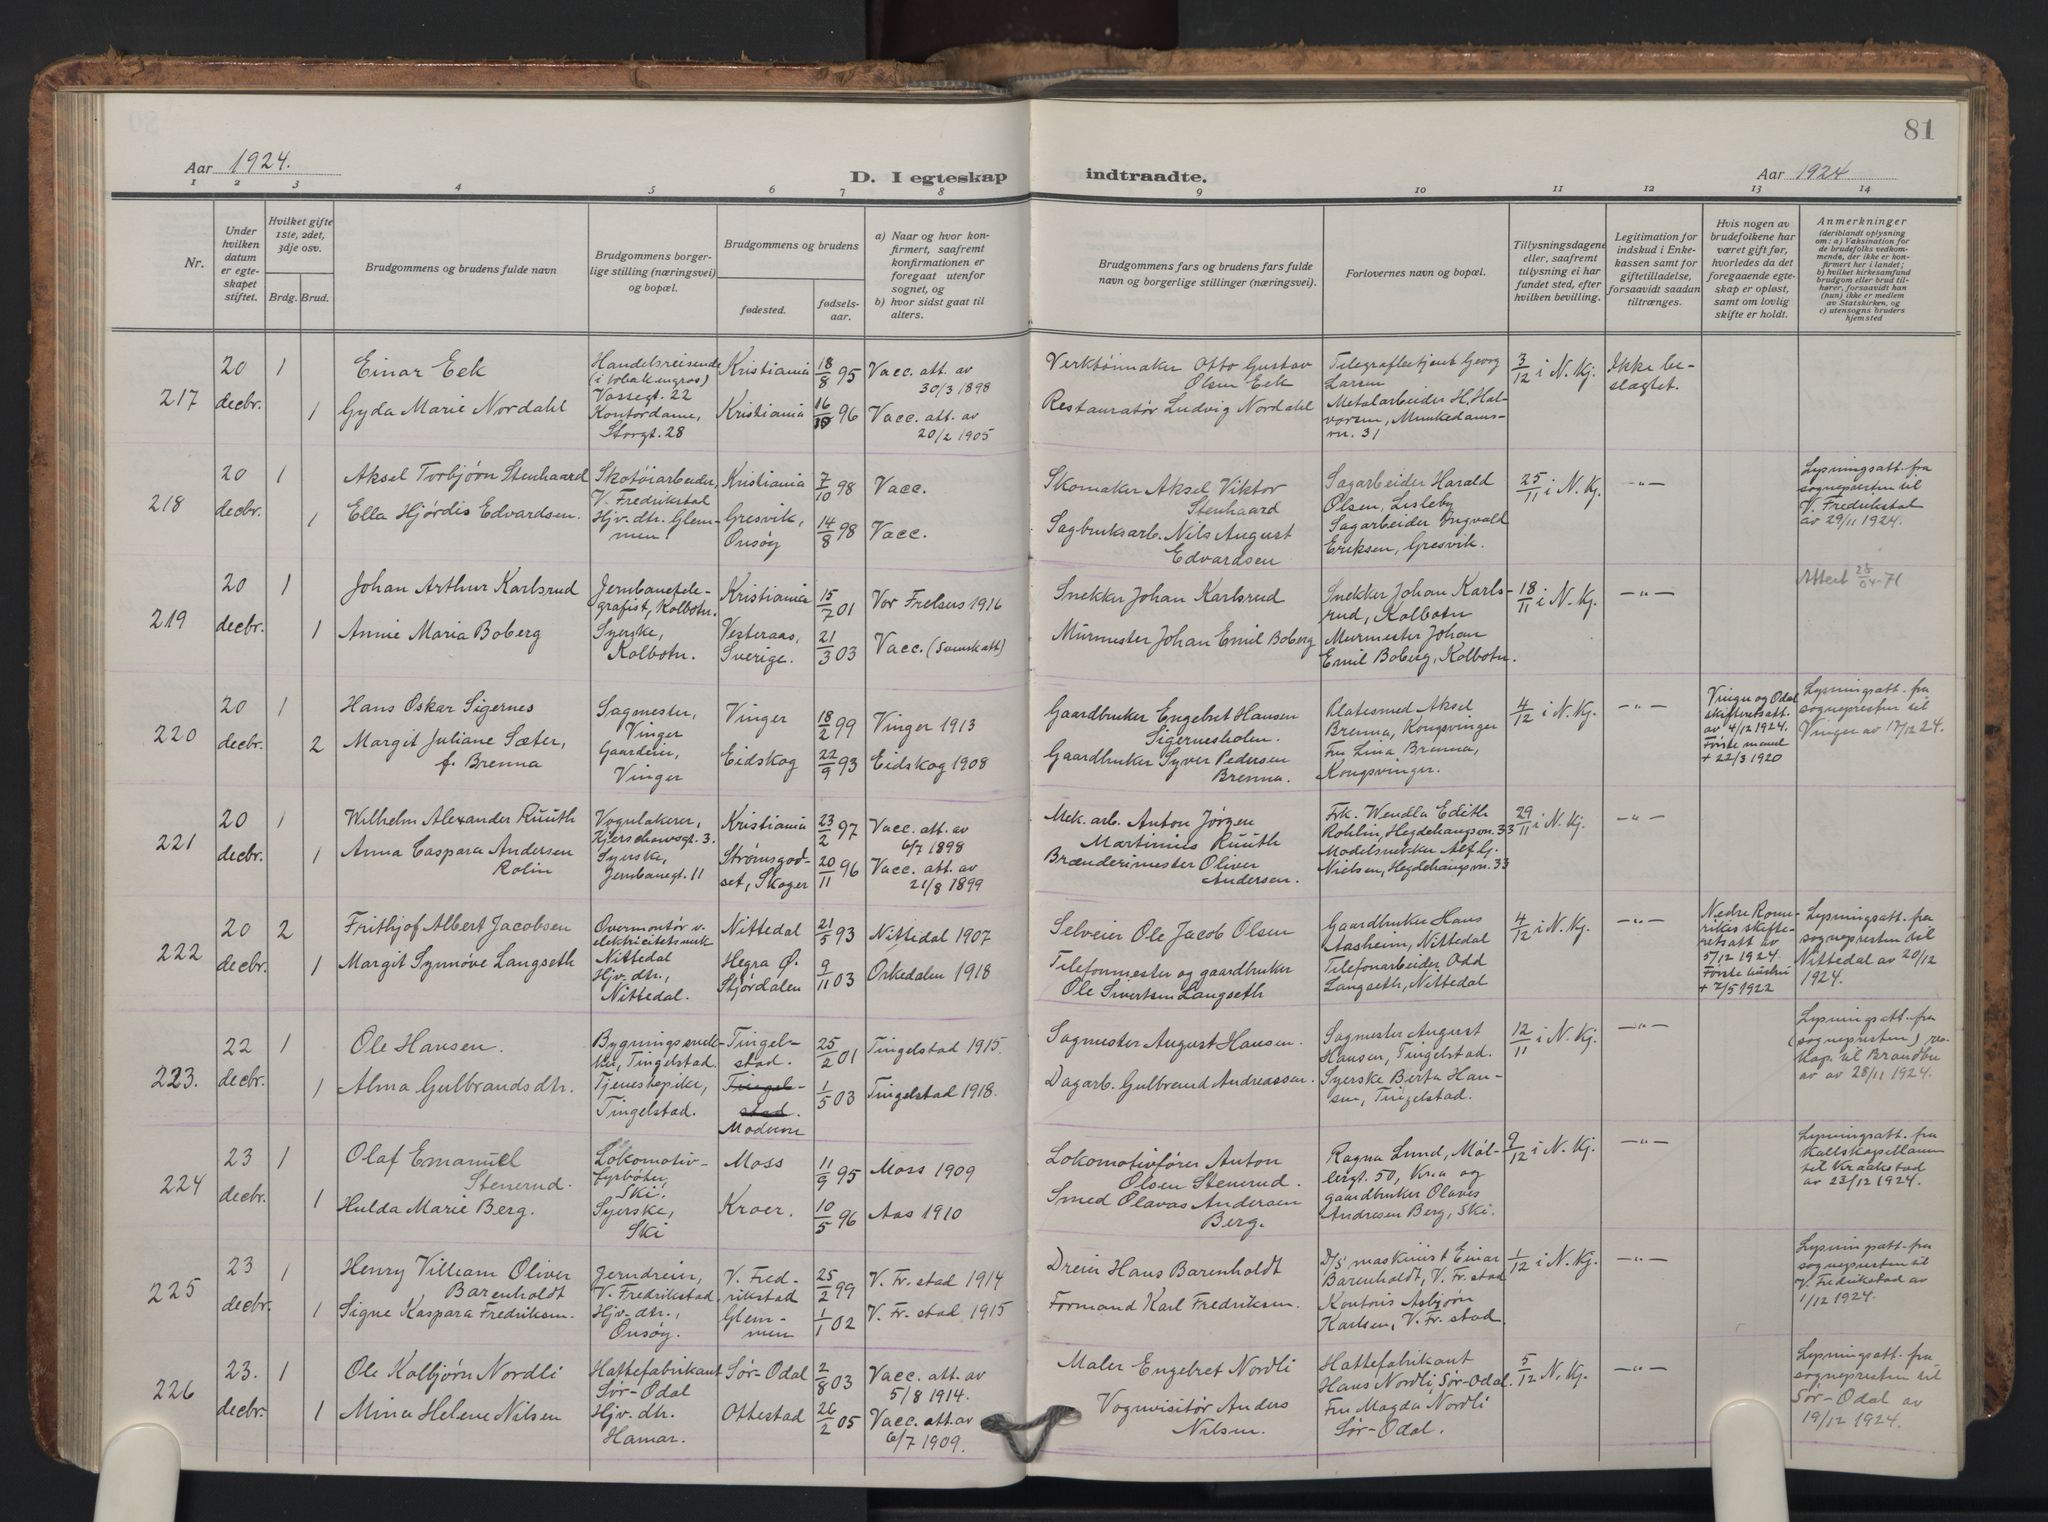 81
Aar 1924.
D. I egteskap indtraadte.
Aar 1924
1 2 3 4 5 6 7 8 9 10 11 12 13 14
Nr.
Under hvilken datum er egte- skapet stiftet.
Hvilket gifte 1ste, 2det, 3dje osv.
Brdg. Brud.
Brudgommens og brudens fulde navn
Brudgommens borger- lige stilling (næringsvei) og bopæl.
Brudgommens og brudens
fødested.
fødsels- aar.
a) Naar og hvor kon- firmert, saafremt konfirmationen er foregaat utenfor sognet, og
b) hvor sidst gaat til alters.
Brudgommens fars og brudens fars fulde navn og borgerlige stillinger (næringsvei).
Forlovernes navn og bopæl.
Tillysningsdagene eller, saafremt tillysning ei har fundet sted, efter hvilken bevilling.
Legitimation for indskud i Enke- kassen samt for giftetilladelse, forsaavidt saadan tiltrænges.
Hvis nogen av brudefolkene har været gift før, hvorledes da det foregaaende egte- skap er opløst, samt om lovlig skifte er holdt.
Anmerkninger (deriblandt oplysning om: a) Vaksination for de brudefolks vedkom- mende, der ikke er kon- firmert her i landet; b) hvilket kirkesamfund brudgom eller brud til- hører, forsaavidt han (hun) ikke er medlem av Statskirken, og c) utensogns bruders hjemsted
217
20 decbr.
1
1
Einar Eek
Gyda Marie Nordahl
Handelsreisende (i tobak engros) Vassegt. 22
Kontordame, Storgt. 28
Kristiania 18/8 95
Kristiania 16/10 96
Vacc. att. av 30/3 1898
Vacc. att. av 20/2 1905
Verktøimaker Otto Gustav Olsen Eek
Restauratør Ludvig Nordahl
Telegrafbetjent Georg Larsen
Metalarbeider H. Hal- vorsen, Munkedams- vn. 31
3/12 i N. Kj.
Ikke be- slægtet.
218
20 decbr.
1
1
Aksel Torbjørn Stenhaard
Ella Hjørdis Edvardsen.
Skotøiarbeider, V. Fredrikstad
Hjv. dtr. Glem- men
Kristiania 7/10 98
Gresvik, Onsøy 14/8 98
Vacc.
Vacc.
Skomaker Aksel Viktor Stenhaard
Sagbruksarb. Nils August Edvardsen
Sagarbeider Harald Olsen, Lisleby
Sagarbeider Ingvald Eriksen, Gresvik.
25/11 i N. Kj.
-"-
Lysningsatt. fra sognepresten til V. Fredrikstad av 29/11 1924.
219
20 decbr.
1
1
Johan Arthur Karlsrud
Annie Maria Boberg
Jernbanetele- grafist, Kolbotn.
Syerske, Kolbotn.
Kristiania 15/7 01
Vesteraas, Sverige. 21/3 03
Vor Frelsers 1916
Vacc. (svensk att)
Snekker Johan Karlsrud
Murmester Johan Emil Boberg
Snekker Johan Karls- rud, Kolbotn
Murmester Johan Emil Boberg, Kolbotn.
18/11 i N. Kj.
-"-
Attert 28/04-71
220
20 decbr.
1
2
Hans Oskar Sigernes
Margit Juliane Sæter, f. Brenna
Sagmester, Vinger
Gaardeier, Vinger
Vinger 18/2 99
Eidskog 22/9 93
Vinger 1913
Eidskog 1908
Gaardbruker Engebret Hansen Sigernesholen.
Gaardbruker Syver Pedersen Brenna.
Klatesmed Aksel Brenna, Kongsvinger
Fru Lina Brenna, Kongsvinger.
4/12 i N. Kj.
-"-
Vinger og Odal skifteretsatt. av 4/12 1924. Første mand + 22/3 1920
Lysningsatt. fra sognepresten til Vinger av 17/12 24.
221
20 decbr.
1
1
Wilhelm Alexander Ruuth
Anna Caspara Andersen Rolin
Vognlakerer, Kjerschowsgt. 3.
Syerske, Jernbanegt. 11
Kristiania 23/2 97
Strømsgod- set, Skoger 20/11 96
Vacc. att. av 6/7 1898
Vacc. att. av 21/8 1899
Mek. arb. Anton Jørgen Martinius Ruuth
Brænderimester Oliver Andersen.
Frk. Wendla Edith Rohlin, Hegdehaugsvn. 33
Modelsnekker Alf G. Nielsen, Hegdehaugsvn. 33
29/11 i N. Kj.
-"-
222
20 decbr.
2
1
Frithjof Albert Jacobsen
Margit Synnøve Langseth
Overmontør v. elektricitetsverk Nittedal
Hjv. dtr., Nittedal.
Nittedal 21/5 93
Hegra Ø. Stjørdalen 9/11 03
Nittedal 1907
Orkedalen 1918
Selveier Ole Jacob Olsen
Telefonmester og gaardbruker Ole Sivertsen Langseth
Gaardbruker Hans Aasheim, Nittedal
Telefonarbeider Odd Langseth, Nittedal
4/12 i N. Kj.
-"-
Nedre Rome- rikes skifte- retsatt av 5/12 1924. Første hustru + 7/5 1922
Lysningsatt. fra sognepresten til Nittedal av 20/12 1924.
223.
22 decbr.
1
1
Ole Hansen.
Alma Gulbrandsdtr.
Bygningssnek- ker, Tingelstad.
Tjenestepike, Tingelstad.
Tingel- stad. 25/2 01
Tingel- stad. Modum 1/5 03
Tingelstad 1915.
Tingelstad 1918.
Sagmester August Hansen.
Dagarb. Gulbrand Andreassen.
Sagmester August Hansen, Tingelstad.
Syerske Berta Han- sen, Tingelstad.
12/11 i N. Kj.
-"-
Lysningsatt. fra (sognepresten) res. kap. til Brandbu av av 28/11 1924.
224
23 decbr.
1
1
Olaf Emanuel Stenerud.
Hulda Marie Berg.
Lokomotiv- fyrbøter, Ski.
Syerske, Ski
Moss 11/9 95
Kroer. 10/5 96
Moss 1909
Aas 1910
Lokomotivfører Anton Olsen Stenerud.
Smed Olavus Andersen Berg.
Ragna Lund, Møl- lergt. 50, Kra og
gaardbruker Olaves Andresen Berg, Ski.
9/12 i N. Kj.
-"-
Lysningsatt. fra Kallskapellanen til Kraakstad av 23/12 1924.
225
23 decbr.
1
1
Henry Villiam Oliver Barenholdt
Signe Kaspara Fredriksen.
Jerndreier, V. Fredrikstad
Hjv. dtr., Onsøy.
V. Fred- rikstad 25/2 99
Glem- men 1/1 02
V. Fr. stad 1914
V. Fr. stad 1915
Dreier Hans Barenholdt
Formand Karl Fredriksen.
D/s maskinist Einar Barenholdt, V. Fr. stad
Kontoris Asbjørn Karlsen, V. Fr. stad
1/12 i N. Kj.
-"-
Lysningsatt. fra sognepresten til V. Fredrikstad av 1/12 1924.
226
23. decbr.
1
1
Ole Kolbjørn Nordli
Mina Helene Nilsen
Hattefabrikant Sør-Odal
Hjv. dtr. Hamar.
Sør-Odal 2/8 03
Ottestad 26/2 05
Vacc. att. av 5/8 1914.
Vacc. att. av 6/7 1909.
Maler Engebret Nordli
Vognvisitør Anders Nilsen.
Hattefabrikant Hans Nordli, Sør-Odal.
Fru Magda Nordli Sør-Odal.
5/12 N. Kj.
-"-
Lysningsatt. fra sognepresten til Sør-Odal av 19/12 1924.